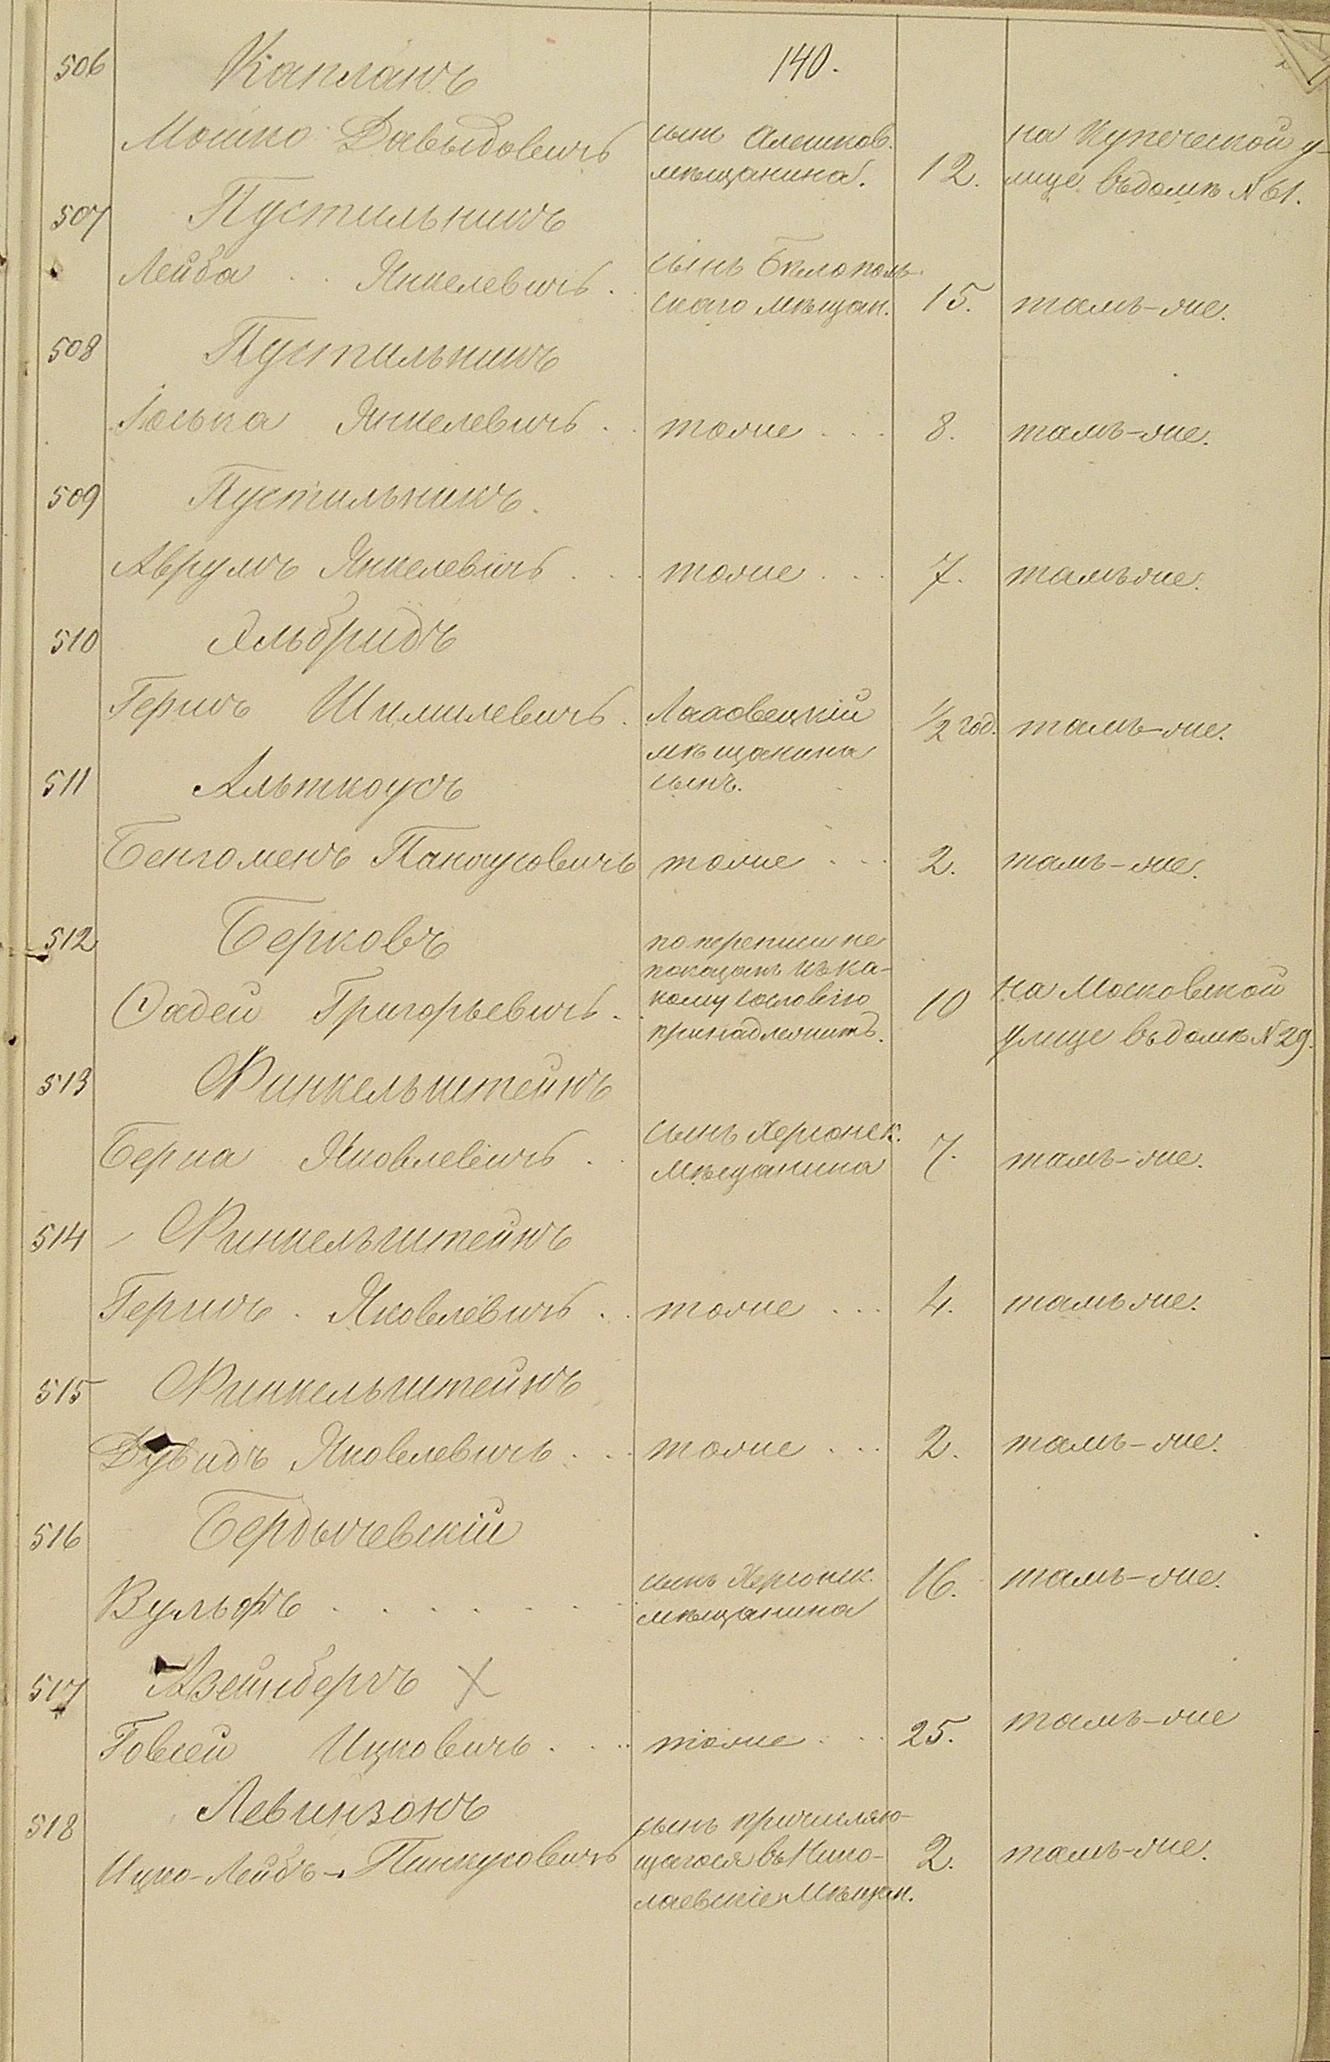 506 Капланъ 140.
Мошко Давыдовичъ сын Алешков. на Купеческой у-
мѣщанина. 12. лице въ домѣ № 61.
507 Пустильникъ
Лейба Янкелевичъ. сынъ Бѣлополь-
скаго мѣщан. 15. тамъ-же.
508 Пустильникъ
Іоська Янкелевичъ . . тоже . . . 8. тамъ-же.
509 Пустильникъ.
Аврумъ Янкелевичъ . . . тоже . . . 7. тамъже.
510 Яльбридъ
Гершъ Шмилевичъ. Лаховецкій 1/2 год. тамъ-же.
мѣщанина
511 Альтгаусъ сынъ.
тоже . . . 2. тамъ-же.
512 Берковъ по переписи не
показанъ къ ка-
Фадей Григорьевичъ. кому сословію 10 на Московской
принадлежитъ. улице въ домѣ № 29.
513 Финкельштейнъ
Берка Яковлевичъ . . сынъ Херсонск. 7. тамъ-же.
мѣщанина
514 Финкельштейнъ
Гершъ . Яковлевичъ . . тоже . . . 4. тамъ же.
515 Финкельштейнъ
Дувидъ Яковлевичъ . . . тоже . . . 2. тамъ-же.
516 Бердичевскій
Вульфъ . . . . . . . сынъ Херсонск. 16. тамъ-же.
мѣщанина
517 Айзенбергъ X
Говсей Ицковичъ . . . тоже . . . 25. тамъ-же
518 Левинзонъ
сынъ причисляю-
Ицко-Лейбъ-. Пинкусовичъ щагося въ Нико- 2. тамъ-же.
лаевскіе Мѣщан.